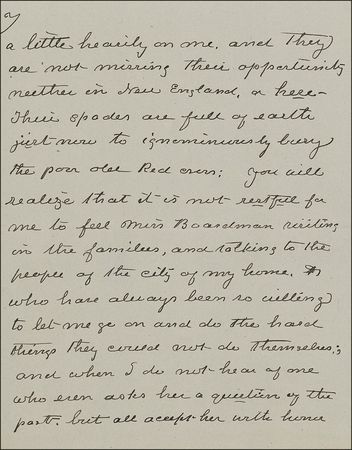 a little heavily on me, and they
are not missing their opportunity
neither in New England, or here -
Their spades are full of earth
just now to ignominiously bury
the poor old Red cross; you will
realize that it is not restful for
me to feel Miss Boardman visiting
in the families, and talking to the
people of the city of my home,
who have always been so willing
to let me go on and do the hard
things they could not do themselves;
and when I do not hear of one
who even asks her a question of the
past, but all accept her with honor